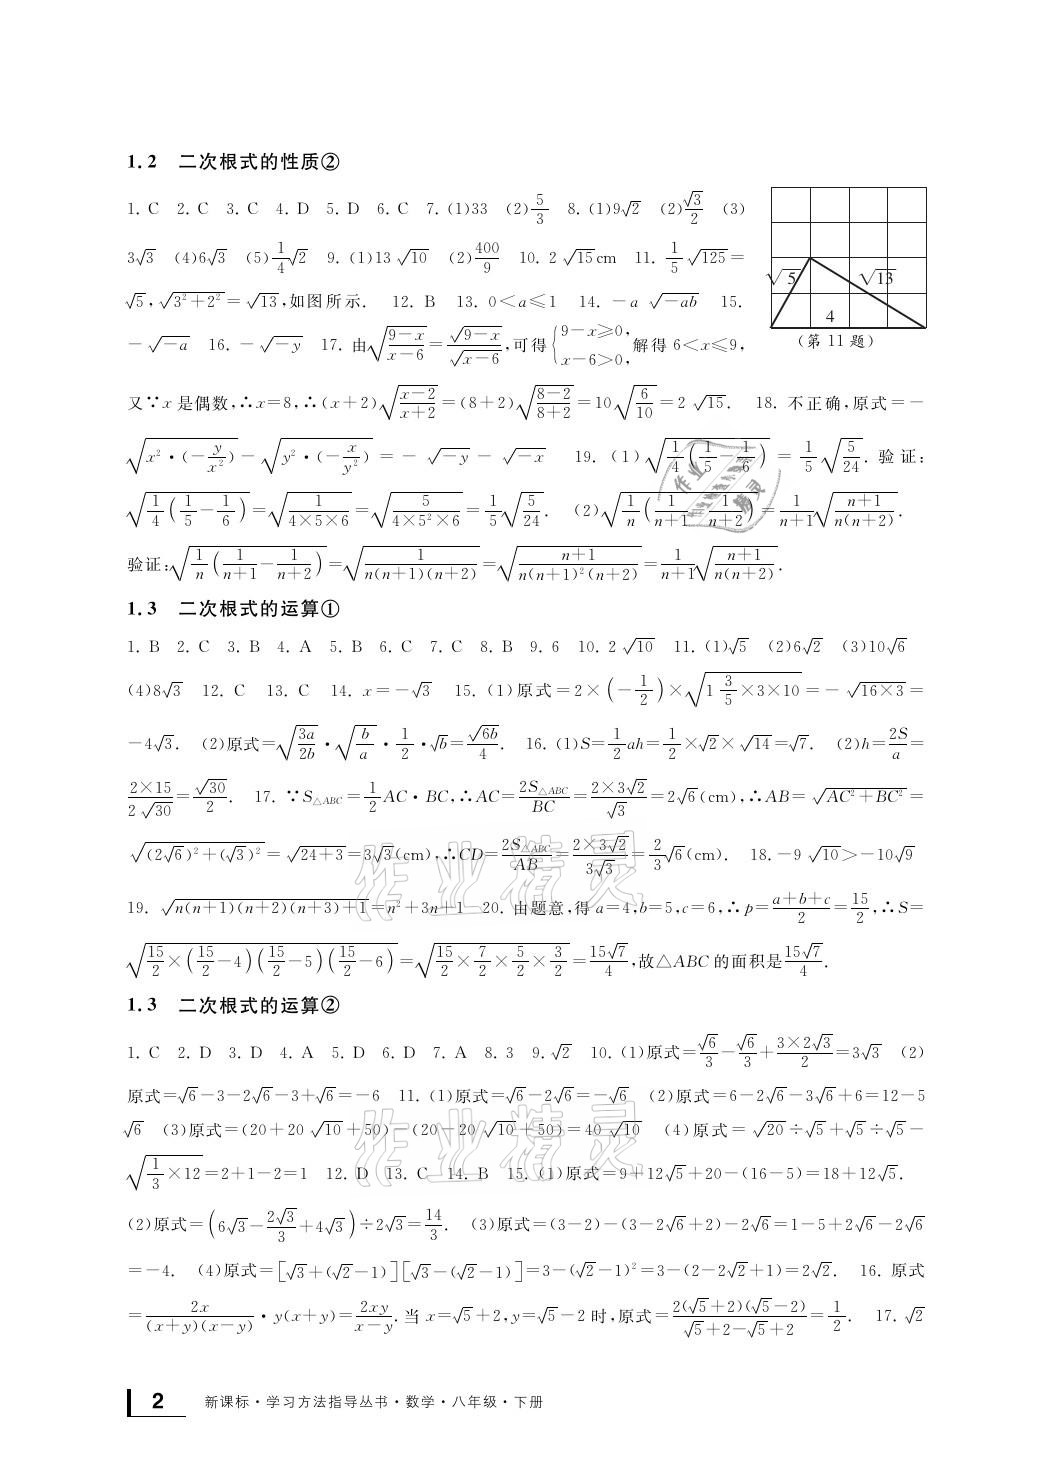 1. 2 二次根式的性质②
1. C 2. C 3. C 4. D 5. D 6. C 7. (1)33 (2)5/3 8. (1)9√2 (2)√3/2 (3)
3√3 (4)6√3 (5)1/4√2 9. (1)13√10 (2)400/9 10. 2√15cm 11. 1/5√125=
√5,√(3²+2²)=√13,如图所示. 12. B 13. 0<a≤1 14. -a√(-ab) 15.
-√(-a) 16. -√(-y) 17. 由√((9-x)/(x-6))=√(9-x)/√(x-6),可得{9-x≥0, x-6>0,解得 6<x≤9,
√5 √13
4
(第 11 题)
又∵x 是偶数,∴x=8,∴(x+2)√((x-2)/(x+2))=(8+2)√((8-2)/(8+2))=10√(6/10)=2√15. 18. 不正确,原式=-
√(x²·(-y/x²))-√(y²·(-x/y²))=-√(-y)-√(-x) 19. (1)√(1/4(1/5-1/6))=1/5√(5/24). 验证:
√(1/4(1/5-1/6))=√(1/(4×5×6))=√(5/(4×5²×6))=1/5√(5/24). (2)√(1/n(1/(n+1)-1/(n+2)))=1/(n+1)√((n+1)/(n(n+2))).
验证:√(1/n(1/(n+1)-1/(n+2)))=√(1/(n(n+1)(n+2)))=√((n+1)/(n(n+1)²(n+2)))=1/(n+1)√((n+1)/(n(n+2))).
1. 3 二次根式的运算①
1. B 2. C 3. B 4. A 5. B 6. C 7. C 8. B 9. 6 10. 2√10 11. (1)√5 (2)6√2 (3)10√6
(4)8√3 12. C 13. C 14. x=-√3 15. (1)原式=2×(-1/2)×√(1 3/5×3×10)=-√(16×3)=
-4√3. (2)原式=√(3a/2b)·√(b/a)·1/2·√b=√(6b)/4. 16. (1)S=1/2ah=1/2×√2×√14=√7. (2)h=2S/a=
2×15/2√30=√30/2. 17. ∵S△ABC=1/2AC·BC,∴AC=2S△ABC/BC=2×3√2/√3=2√6(cm),∴AB=√(AC²+BC²)=
√((2√6)²+(√3)²)=√(24+3)=3√3(cm),∴CD=2S△ABC/AB=2×3√2/3√3=2/3√6(cm). 18. -9√10>-10√9
19. √(n(n+1)(n+2)(n+3)+1)=n²+3n+1 20. 由题意,得 a=4,b=5,c=6,∴p=(a+b+c)/2=15/2,∴S=
√(15/2×(15/2-4)(15/2-5)(15/2-6))=√(15/2×7/2×5/2×3/2)=15√7/4,故△ABC 的面积是15√7/4.
1. 3 二次根式的运算②
1. C 2. D 3. D 4. A 5. D 6. D 7. A 8. 3 9. √2 10. (1)原式=√6/3-√6/3+3×2√3/2=3√3 (2)
原式=√6-3-2√6-3+√6=-6 11. (1)原式=√6-2√6=-√6 (2)原式=6-2√6-3√6+6=12-5
√6 (3)原式=(20+20√10+50)-(20-20√10+50)=40√10 (4)原式=√20÷√5+√5÷√5-
√(1/3×12)=2+1-2=1 12. D 13. C 14. B 15. (1)原式=9+12√5+20-(16-5)=18+12√5.
(2)原式=(6√3-2√3/3+4√3)÷2√3=14/3. (3)原式=(3-2)-(3-2√6+2)-2√6=1-5+2√6-2√6
=-4. (4)原式=[√3+(√2-1)][√3-(√2-1)]=3-(√2-1)²=3-(2-2√2+1)=2√2. 16. 原式
=2x/((x+y)(x-y))·y(x+y)=2xy/(x-y). 当 x=√5+2,y=√5-2 时,原式=2(√5+2)(√5-2)/(√5+2-√5+2)=1/2. 17. √2
2 新课标·学习方法指导丛书·数学·八年级·下册
作业精灵
作业精灵
作业精灵